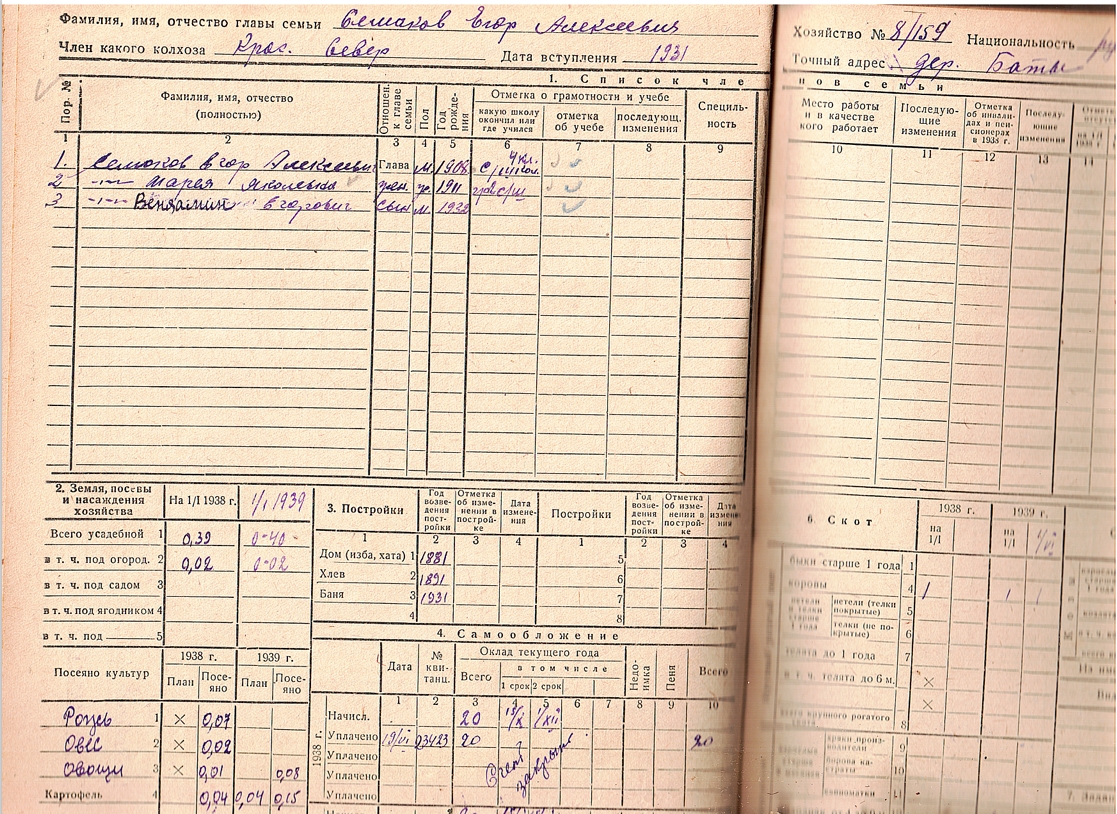 Фамилия, имя, отчество главы семьи Семаков Егор Алексеевич
Член какого колхоза Крас. Север Дата вступления 1931
1. Список чле
Пор. № Фамилия, имя, отчество (полностью) Отношен. к главе семьи Пол Год рожде- ния Отметка о грамотности и учебе Специль- ность
какую школу окончил или где учился отметка об учебе последующ. изменения
1 2 3 4 5 6 7 8 9
1. Семаков Егор Алексеевич Глава м 1908 4 кл. с/школ.
2 -"- Мария Яковлевна жен. ж. 1911
3 -"- Вениамин Егорович сын м. 1932
2. Земля, посевы и насаждения хозяйства На 1/I 1938 г. 1/I 1939
Всего усадебной 1 0,39 0-40
в т. ч. под огород. 2 0,02 0-02
в т. ч. под садом 3
в т. ч. под ягодником 4
в т. ч. под 5
Посеяно культур 1938 г. 1939 г.
План Посе- яно План Посе- яно
Рожь 1 × 0,07
Овес 2 × 0,02
Овощи 3 × 0,01 0,08
Картофель 4 0,04 0,04 0,15
3. Постройки Год возве- дения пост- ройки Отметка об изме- нении в построй- ке Дата измене- ния Постройки Год возве- дения пост- ройки Отметка об изме- нении в построй- ке Дата измене
1 2 3 4 1 2 3 4
Дом (изба, хата) 1 1881 5
Хлев 2 1891 6
Баня 3 1931 7
4 8
4. Самообложение
Дата № кви- танц. Оклад текущего года Недо- имка Пеня Всего
Всего в том числе
1 срок 2 срок
1 2 3 4 5 6 7 8 9 10
1938 г.
Начисл. 20 15/X 1/XII
Уплачено 19/VI 93423 20 20
Уплачено
Уплачено
Уплачено
Счет закрыт
Хозяйство № 8/159 Национальность
Точный адрес дер. Баты
нов семьи
Место работы и в качестве кого работает Последую- щие изменения Отметка об инвали- дах и пен- сионерах в 1938 г. Последу- ющие изменения
10 11 12 13 14
6. Скот 1938 г. 1939 г.
на 1/I на 1/I
быки старше 1 года 1
коровы 4 1 1 1
нетели и телки старше 1 года нетели (телки покрытые) 5
телки (не по- крытые) 6
телята до 1 года 7
в т. ч. телята до 6 м. ×
всего крупного рогатого 8 ×
хряки-произ- водители 9
борова ка- страты 10
свиноматки 11